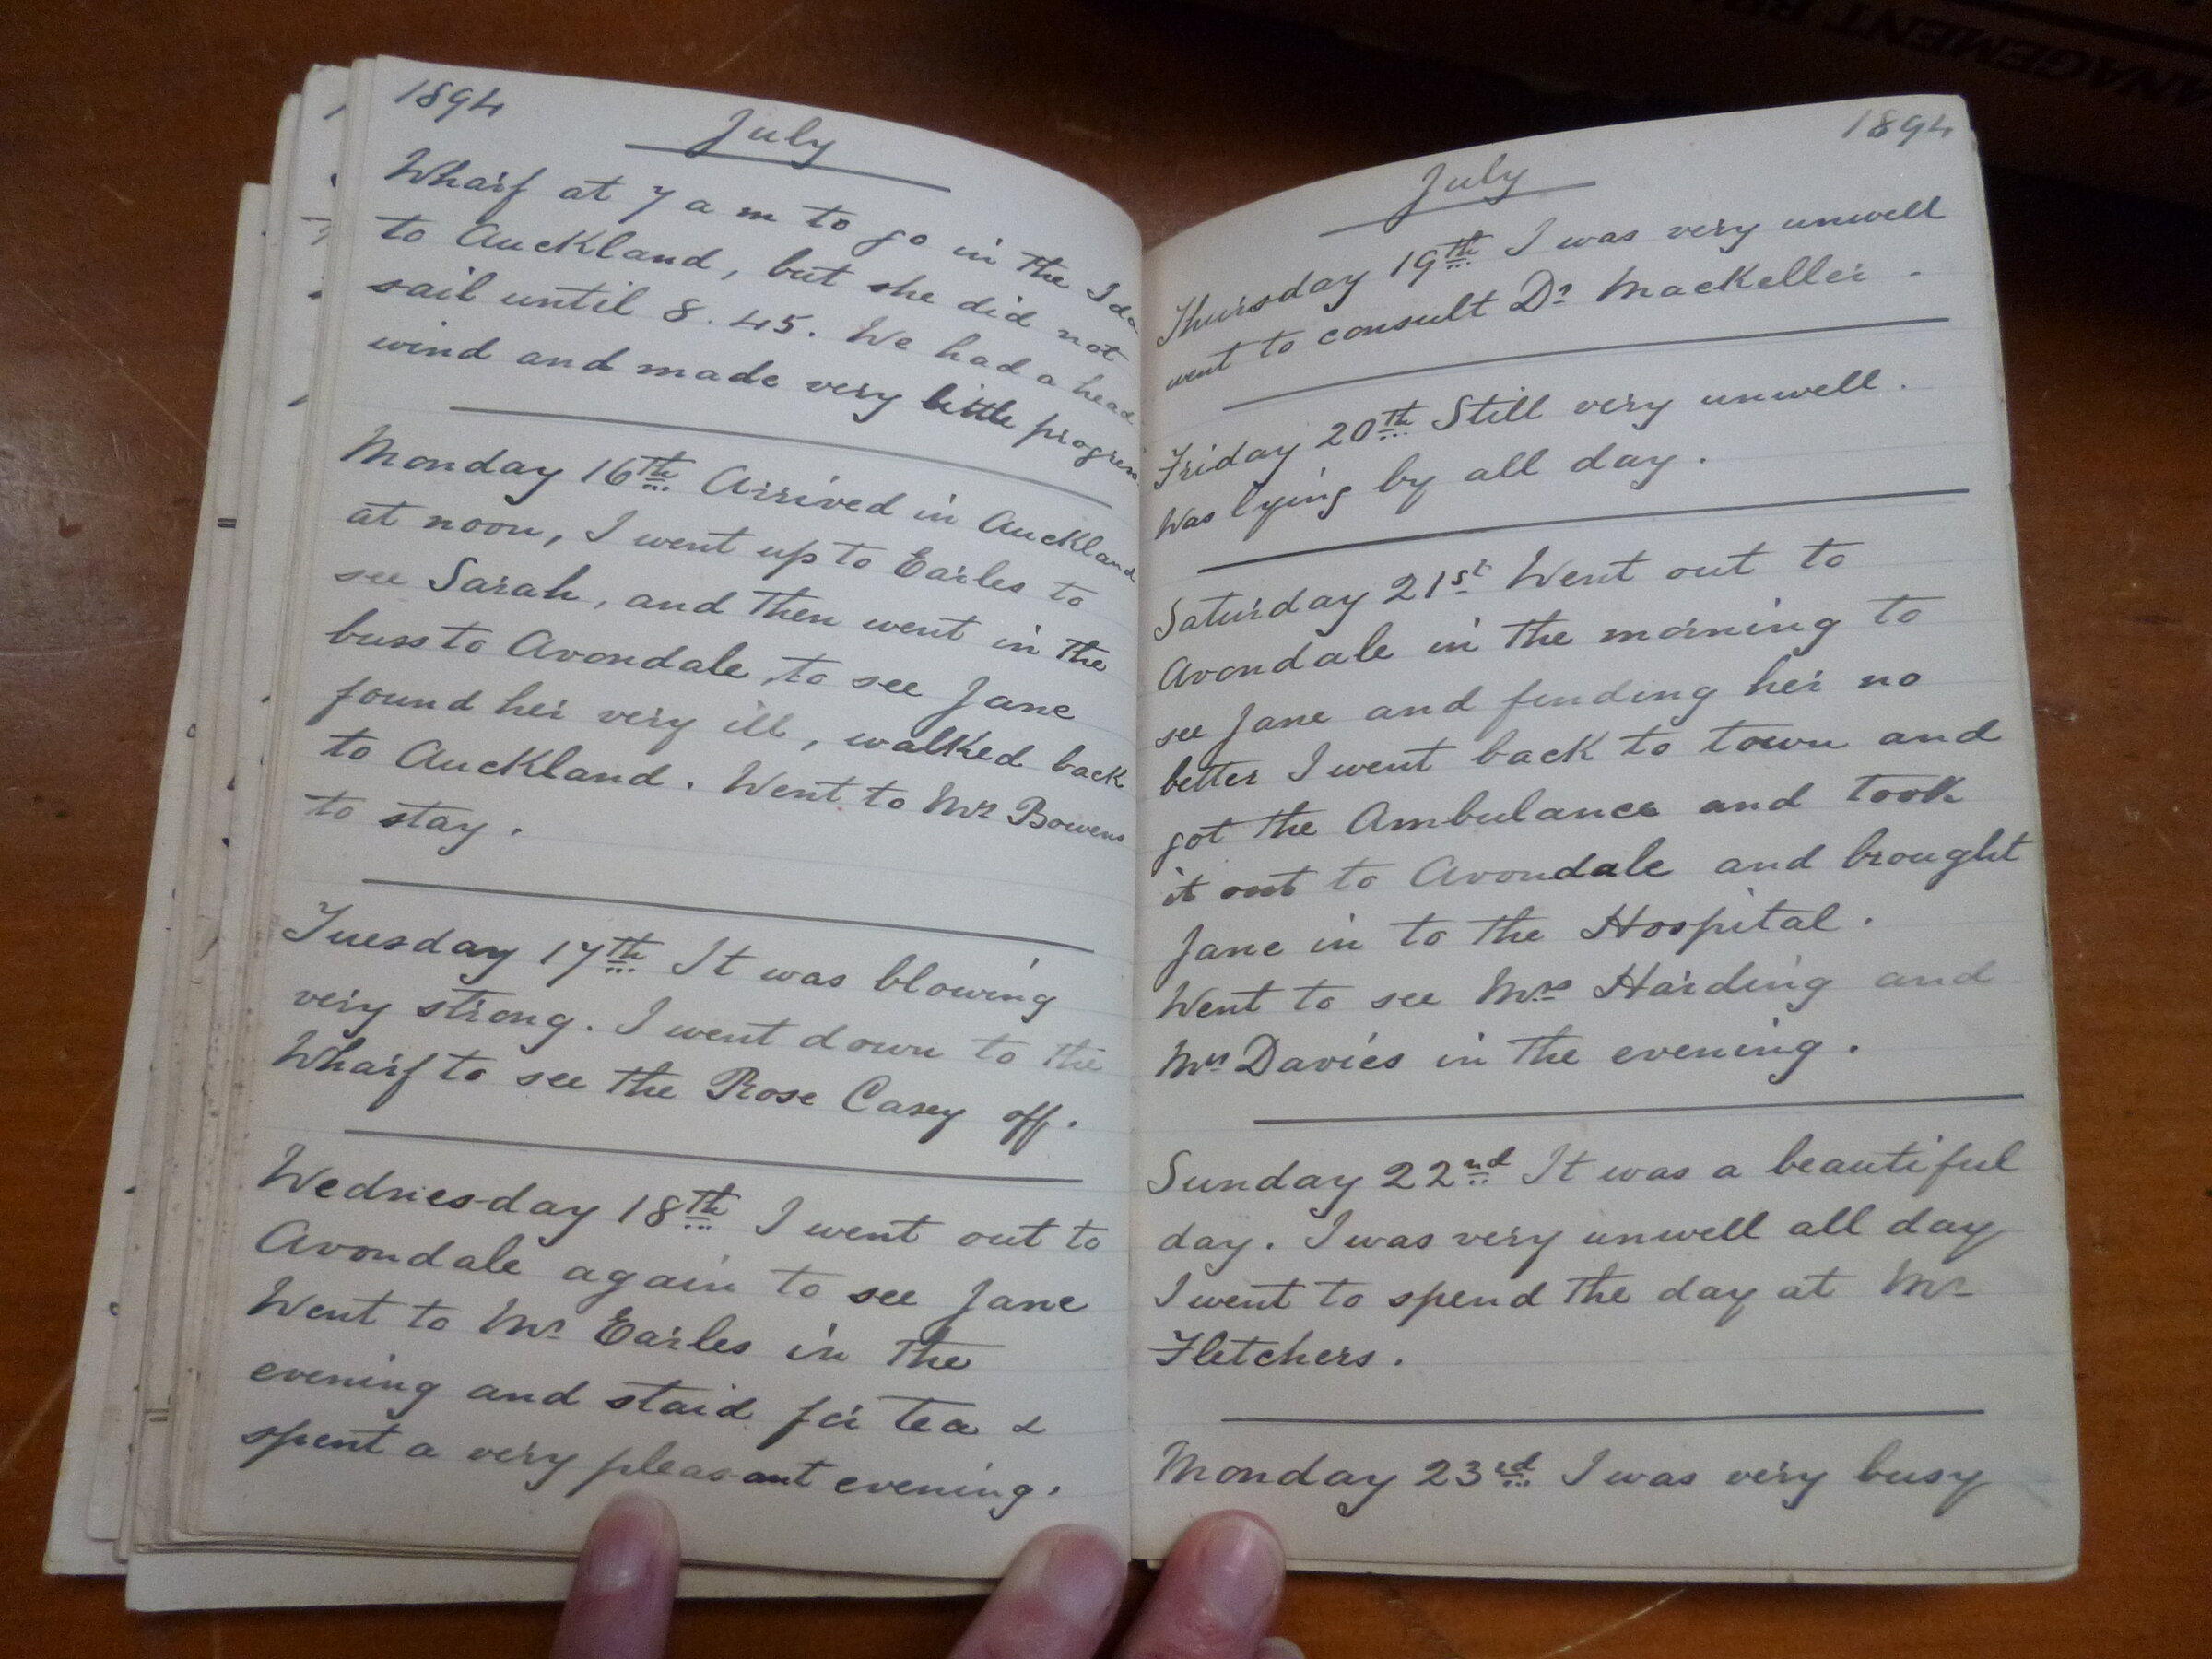 1894
July
Wharf at 7 a m to go in the Ida
to Auckland, but she did not
sail until 8.45. We had a head
wind and made very little progress.
Monday 16th Arrived in Auckland
at noon, I went up to Earles to
see Sarah, and then went in the
buss to Avondale, to see Jane
found her very ill, walked back
to Auckland. Went to Mr Bowens
to stay.
Tuesday 17th It was blowing
very strong. I went down to the
Wharf to see the Rose Casey off.
Wednesday 18th I went out to
Avondale again to see Jane
Went to Mr Earles in the
evening and staid for tea &
spent a very pleasant evening.
1894
July
Thursday 19th I was very unwell
went to consult Dr Mackeller.
Friday 20th Still very unwell.
Was lying by all day.
Saturday 21st Went out to
Avondale in the morning to
see Jane and finding her no
better I went back to town and
got the Ambulance and took
it out to Avondale and brought
Jane in to the Hospital.
Went to see Mrs Harding and
Mrs Davies in the evening.
Sunday 22nd It was a beautiful
day. I was very unwell all day
I went to spend the day at Mr
Fletchers.
Monday 23rd I was very busy